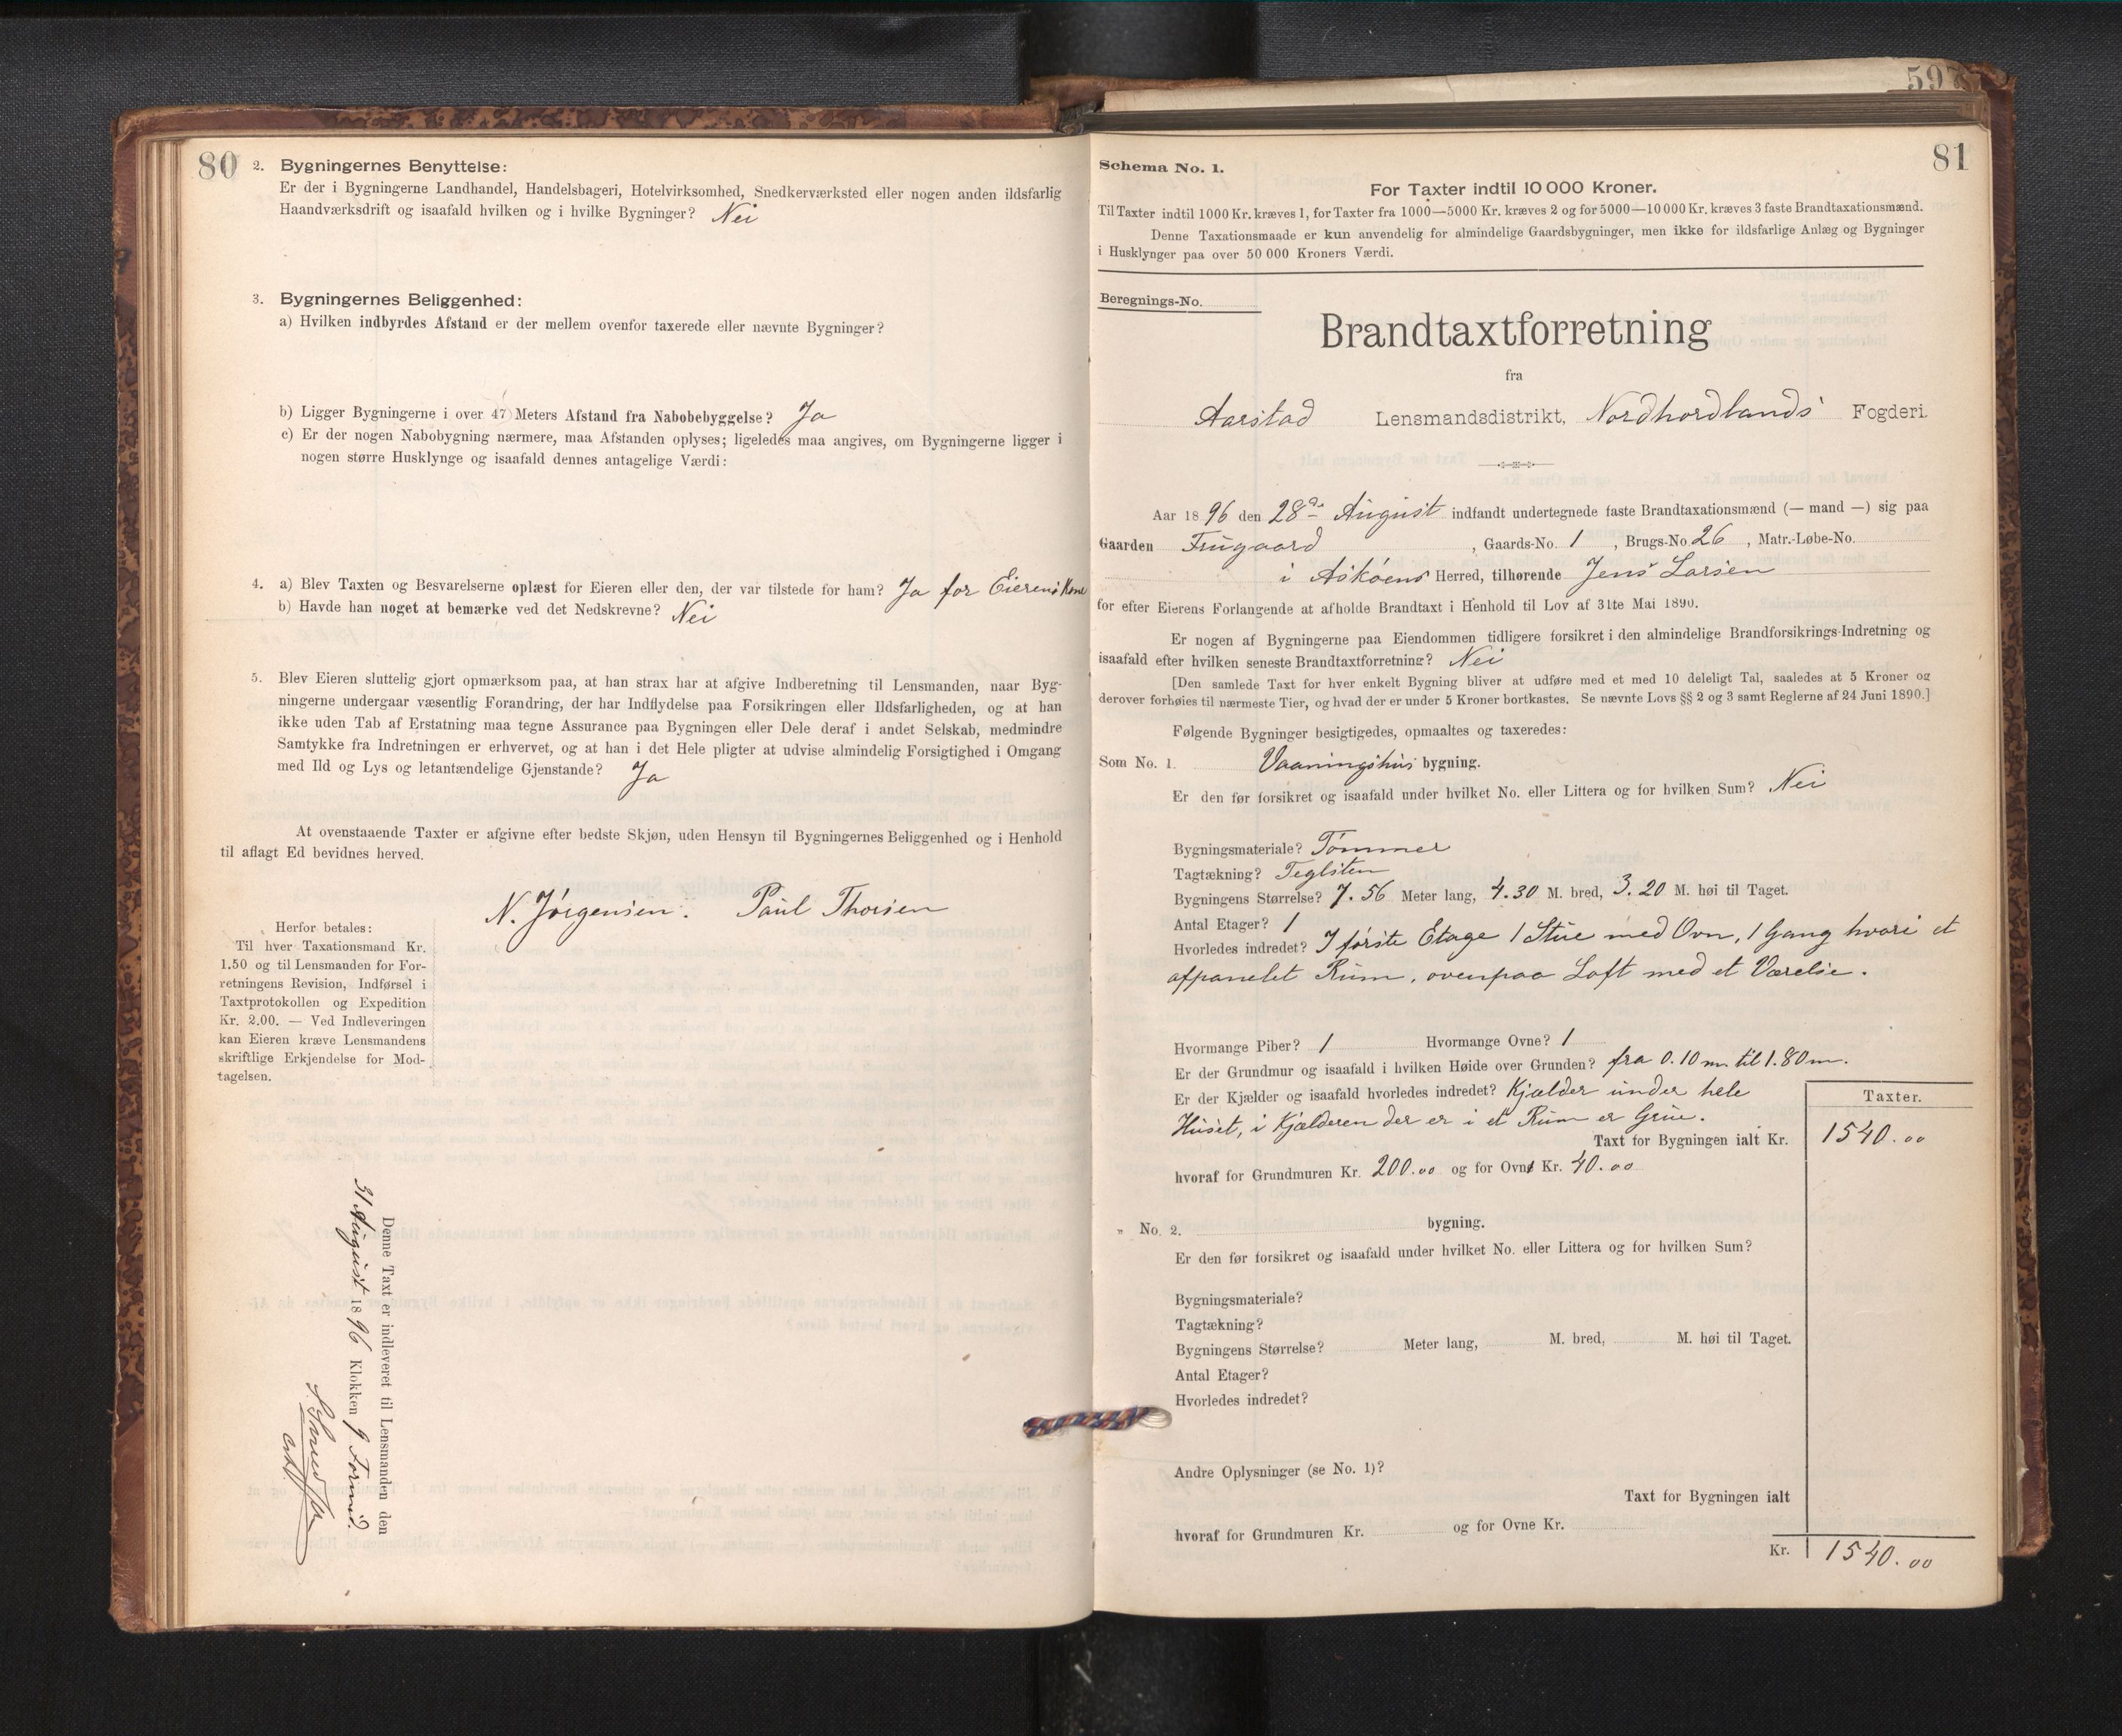 80
2. Bygningernes Benyttelse:
Er der i Bygningerne Landhandel, Handelsbageri, Hotelvirksomhed, Snedkerværksted eller nogen anden ildsfarlig
Haandværksdrift og isaafald hvilken og i hvilke Bygninger? Nei
3. Bygningernes Beliggenhed:
a) Hvilken indbyrdes Afstand er der mellem ovenfor taxerede eller nævnte Bygninger?
b) Ligger Bygningerne i over 47 Meters Afstand fra Nabobebyggelse? Ja
c) Er der nogen Nabobygning nærmere, maa Afstanden oplyses; ligeledes maa angives, om Bygningerne ligger i
nogen større Husklynge og isaafald dennes antagelige Værdi:
4. a) Blev Taxten og Besvarelserne oplæst for Eieren eller den, der var tilstede for ham? Ja for Eierens Kone
b) Havde han noget at bemærke ved det Nedskrevne? Nei
5. Blev Eieren sluttelig gjort opmærksom paa, at han strax har at afgive Indberetning til Lensmanden, naar Byg-
ningerne undergaar væsentlig Forandring, der har Indflydelse paa Forsikringen eller Ildsfarligheden, og at han
ikke uden Tab af Erstatning maa tegne Assurance paa Bygningen eller Dele deraf i andet Selskab, medmindre
Samtykke fra Indretningen er erhvervet, og at han i det Hele pligter at udvise almindelig Forsigtighed i Omgang
med Ild og Lys og letantændelige Gjenstande? Ja
At ovenstaaende Taxter er afgivne efter bedste Skjøn, uden Hensyn til Bygningernes Beliggenhed og i Henhold
til aflagt Ed bevidnes herved.
N. Jørgensen. Paul Thorsen
Herfor betales:
Til hver Taxationsmand Kr.
1.50 og til Lensmanden for For-
retningens Revision, Indførsel i
Taxtprotokollen og Expedition
Kr. 2.00. — Ved Indleveringen
kan Eieren kræve Lensmandens
skriftlige Erkjendelse for Mod-
tagelsen.
Denne Taxt er indleveret til Lensmanden den
31 August 1896 Klokken 9 Formid.
597
81
Schema No. 1.
For Taxter indtil 10 000 Kroner.
Til Taxter indtil 1000 Kr. kræves 1, for Taxter fra 1000—5000 Kr. kræves 2 og for 5000—10 000 Kr. kræves 3 faste Brandtaxationsmænd.
Denne Taxationsmaade er kun anvendelig for almindelige Gaardsbygninger, men ikke for ildsfarlige Anlæg og Bygninger
i Husklynger paa over 50 000 Kroners Værdi.
Beregnings-No.
Brandtaxtforretning
fra
Aarstad Lensmandsdistrikt, Nordhordlands Fogderi.
Aar 1896 den 28de August indfandt undertegnede faste Brandtaxationsmænd (— mand —) sig paa
Gaarden Frugaard, Gaards-No. 1, Brugs-No 26, Matr.-Løbe-No.
i Askøens Herred, tilhørende Jens Larsen
for efter Eierens Forlangende at afholde Brandtaxt i Henhold til Lov af 31te Mai 1890.
Er nogen af Bygningerne paa Eiendommen tidligere forsikret i den almindelige Brandforsikrings-Indretning og
isaafald efter hvilken seneste Brandtaxtforretning? Nei
[Den samlede Taxt for hver enkelt Bygning bliver at udføre med et med 10 deleligt Tal, saaledes at 5 Kroner og
derover forhøies til nærmeste Tier, og hvad der er under 5 Kroner bortkastes. Se nævnte Lovs §§ 2 og 3 samt Reglerne af 24 Juni 1890.]
Følgende Bygninger besigtigedes, opmaaltes og taxeredes:
Som No. 1. Vaaningshus bygning.
Er den før forsikret og isaafald under hvilket No. eller Littera og for hvilken Sum? Nei
Bygningsmateriale? Tømmer
Tagtækning? Teglsten
Bygningens Størrelse? 7.56 Meter lang, 4.30 M. bred, 3.20 M. høi til Taget.
Antal Etager? 1
Hvorledes indredet? I første Etage 1 Stue med Ovn, 1 Gang hvori et
afpanelet Rum, ovenpaa Loft med et Værelse.
Hvormange Piber? 1 Hvormange Ovne? 1
Er der Grundmur og isaafald i hvilken Høide over Grunden? fra 0.10 m til 1.80 m.
Er der Kjælder og isaafald hvorledes indredet? Kjælder under hele
Huset, i Kjælderen der er i et Rum er Grue.
Taxter.
Taxt for Bygningen ialt Kr. 1540.00
hvoraf for Grundmuren Kr. 200.00 og for Ovne Kr. 40.00
" No. 2. bygning.
Er den før forsikret og isaafald under hvilket No. eller Littera og for hvilken Sum?
Bygningsmateriale?
Tagtækning?
Bygningens Størrelse? Meter lang, M. bred, M. høi til Taget.
Antal Etager?
Hvorledes indredet?
Andre Oplysninger (se No. 1)?
Taxt for Bygningen ialt
hvoraf for Grundmuren Kr. og for Ovne Kr.
Kr. 1540.00